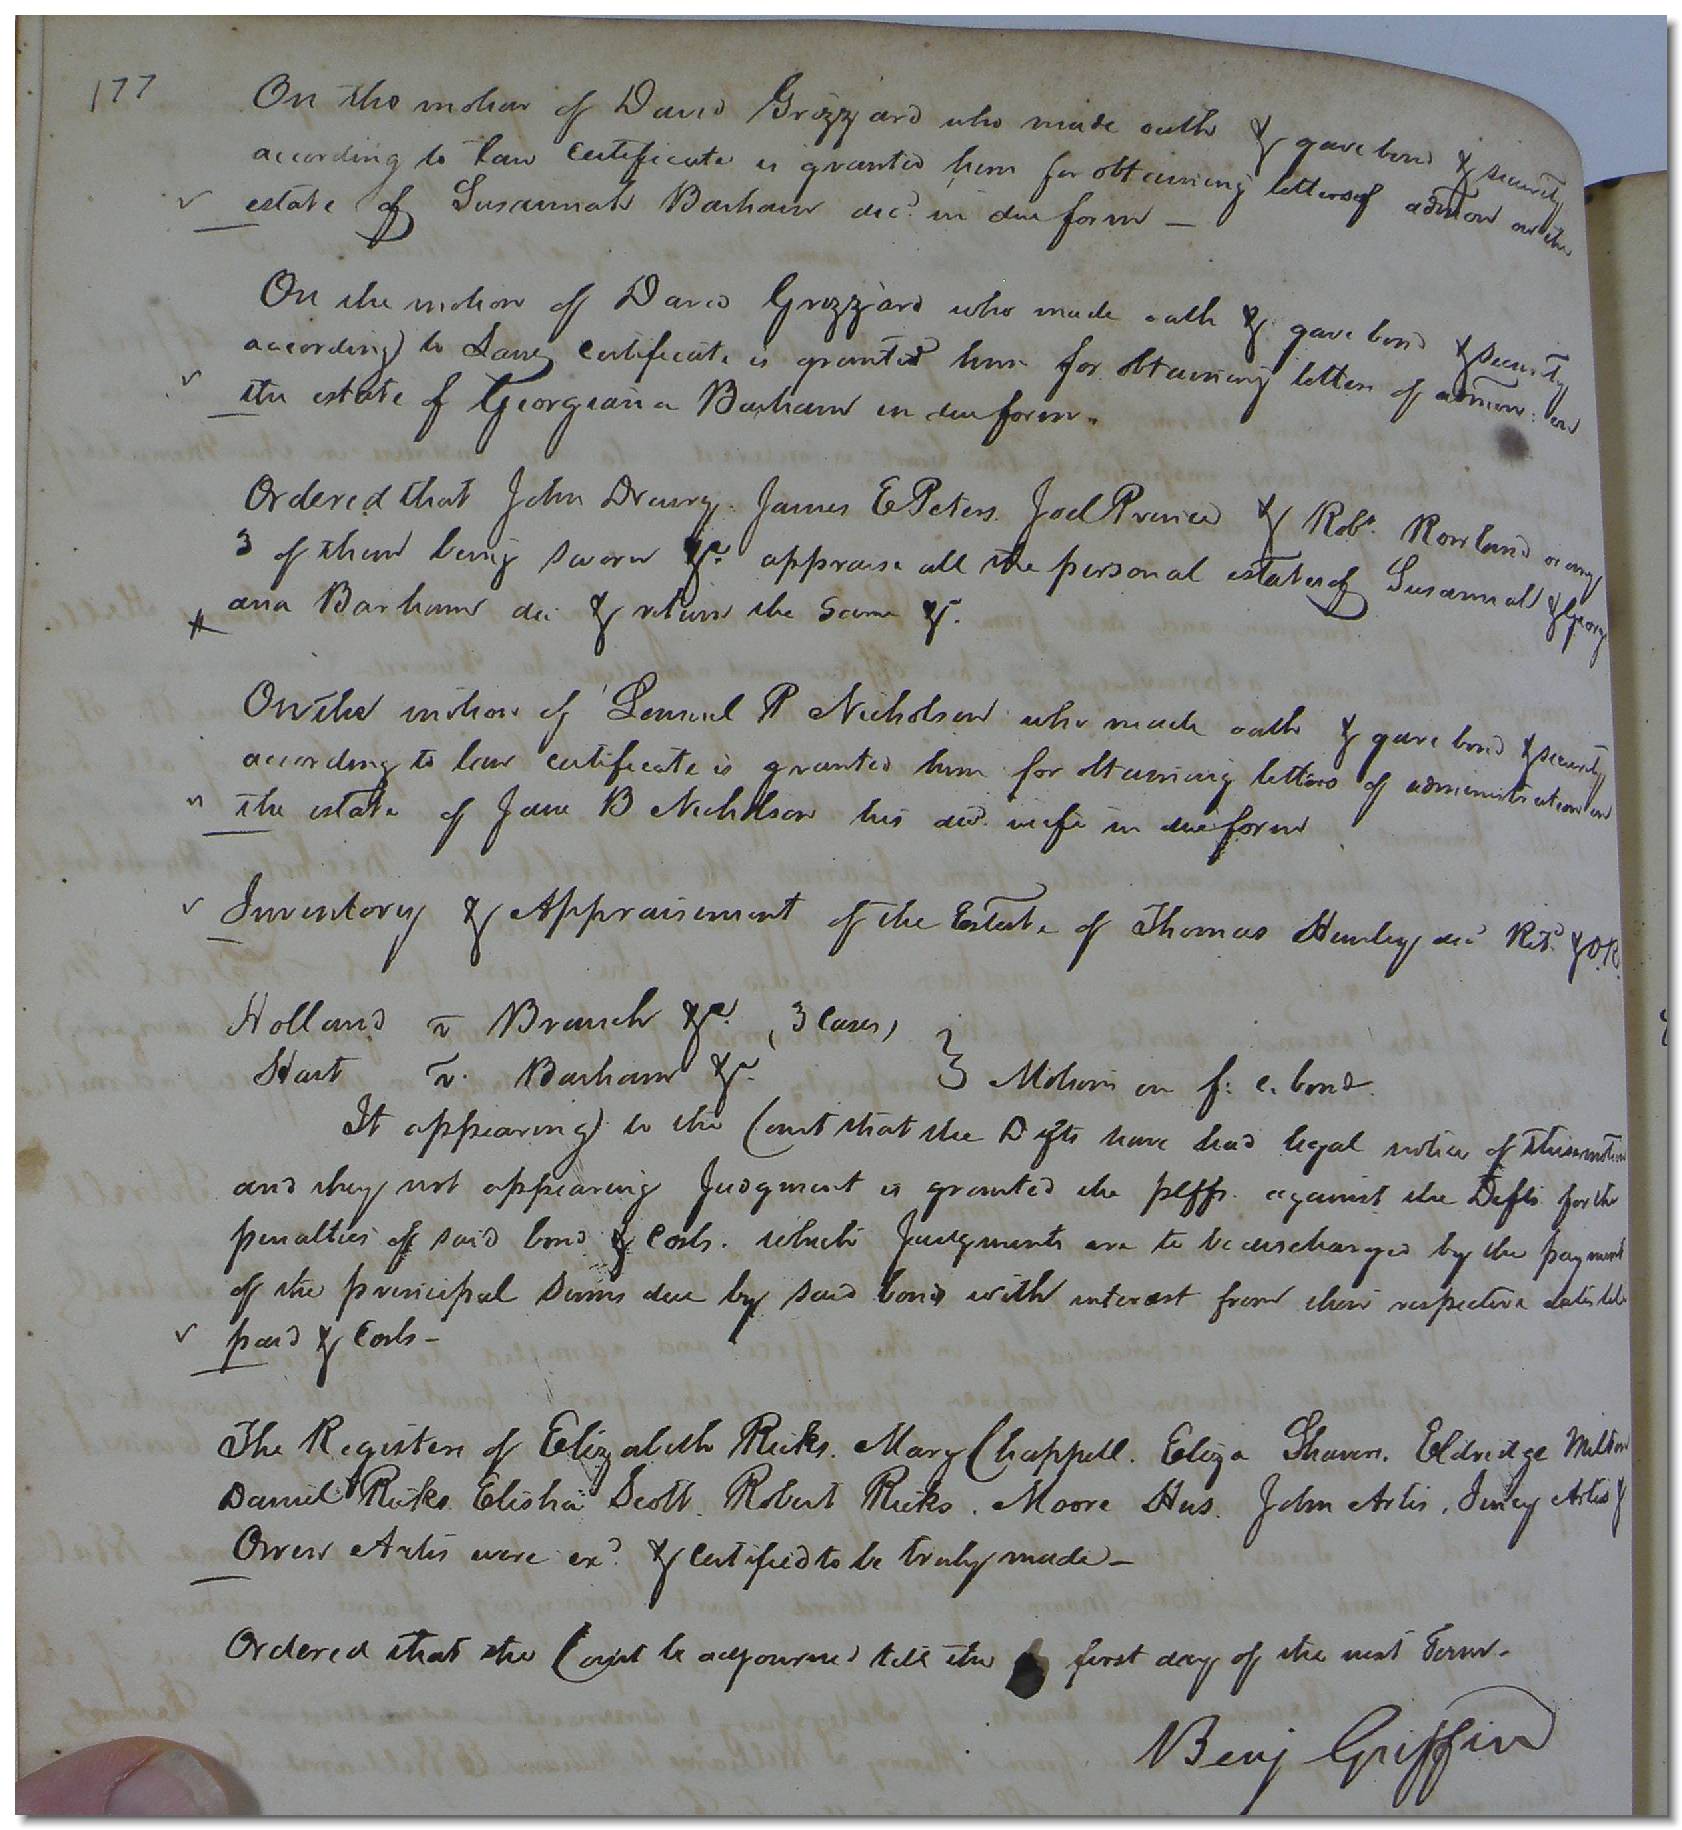 177
On the motion of David Grizzard who made oath & gave bond & security
according to law certificate is granted him for obtaining letters of admon on the
estate of Susannah Barham decd. in due form —
On the motion of David Grizzard who made oath & gave bond & security
according to Law certificate is granted him for obtaining letters of admon: on
the estate of Georgeana Barham in due form.
Ordered that John Drewry. James E Peters. Joel Prince & Robt. Rowland or any
3 of them being sworn &c. appraise all the personal estates of Susannah & Georg
ana Barham dec & return the same &c.
On the motion of Lemuel P Nicholson who made oath & gave bond & security
according to law certificate is granted him for obtaining letters of administration on
the estate of Jane B Nicholson his decd. wife in due form
Inventory & Appraisement of the Estate of Thomas Hunley decd Retd. & O.R.
Holland v Branch &c. (3 Cases)
Hart v. Barham &c. } Motions on f. c. bond.
It appearing to the Court that the Defts have had legal notice of these motions
and they not appearing Judgment is granted the plffs. against the Defts for the
penalties of said bond & Costs. which Judgments are to be discharged by the payment
of the principal sums due by said bonds with interest from their respective dates till
paid & Costs —
The Registers of Elizabeth Ricks. Mary Chappell. Eliza Shavers. Eldridge Milton
Daniel Ricks. Elisha Scott. Robert Ricks. Moore Hus. John Artis. Jincy Artis &
Orren Artis were exd. & certified to be truly made —
Ordered that the Court be adjourned till the first day of the next Term.
Benj Griffin